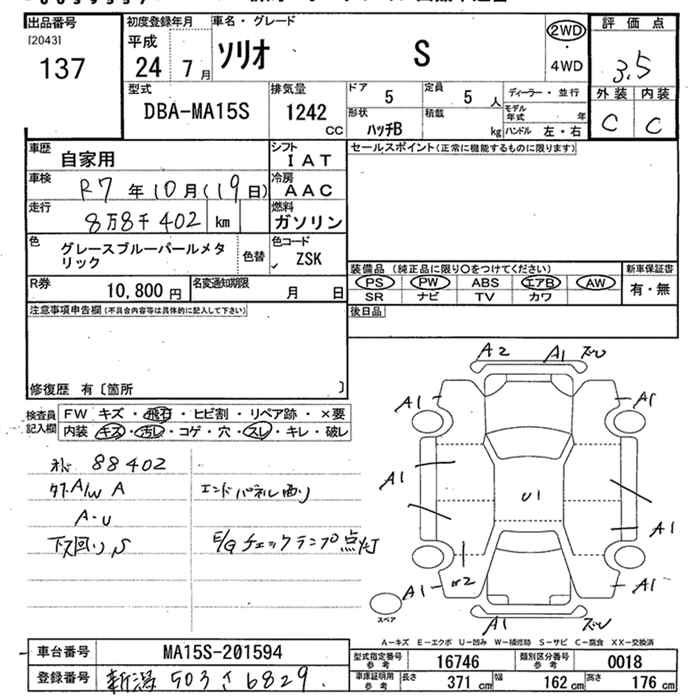 出品番号
[2043]
137
初度登録年月
平成
24 7月
車名・グレード
ソリオ S
2WD
・
4WD
評価点
3.5
外装 内装
C C
型式
DBA-MA15S
排気量
1242
CC
ドア 5
定員 5 人
形状 ハッチB
積載 kg
ディーラー・並行
モデル年式 年
ハンドル 左・右
車歴
自家用
シフト
IAT
車検
R7年10月(19日)
冷房
AAC
走行
8万8千402 km
燃料
ガソリン
色
グレースブルーパールメタ
リック
色替
色コード
ZSK
R券
10,800円
名変通知期限
月 日
セールスポイント(正常に機能するものに限ります)
装備品(純正品に限り〇をつけてください)
新車保証書
PS PW ABS エアB AW
有・無
SR ナビ TV カワ
後日品
注意事項申告欄(不具合内容等は具体的に記入して下さい)
修復歴 有〔箇所 〕
検査員
記入欄
FW キズ・飛石・ヒビ割・リペア跡・×要
内装 キズ・汚レ・コゲ・穴・スレ・キレ・破レ
88402
A/W A
エンドパネル凹り
A・U
下回り S
E/G チェックランプ点灯
A2 A1 ズレ
A1 A1
A1
U1
A1
W2
A1 A1
A1 ズレ
スペア
A-キズ E-エクボ U-凹み W-補修跡 S-サビ C-腐食 XX-交換済
車台番号
MA15S-201594
登録番号
新潟 503 さ 6829
型式指定番号
参考
16746
類別区分番号
参考
0018
車庫証明用
参考
長さ 371 cm
幅 162 cm
高さ 176 cm